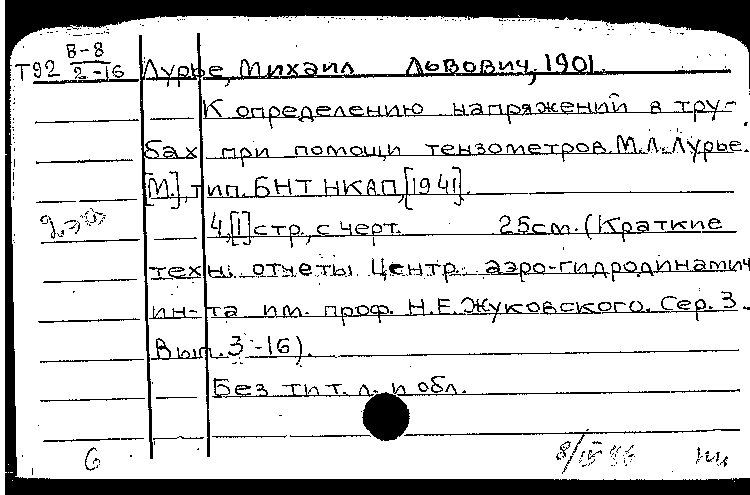 Т92 В-8/2-16 Лурье, Михаил Львович, 1901.
К определению напряжений в тру-
бах при помощи тензометров. М.Л. Лурье.
[М.], тип. БНТ НКАП, [1941].
4, [1] стр., с черт. 25см. (Краткие
техн. отчеты Центр. аэро-гидродинамич
ин-та им. проф. Н.Е. Жуковского. Сер. 3.
Вып. 3-16).
Без тит. л. и обл.
6